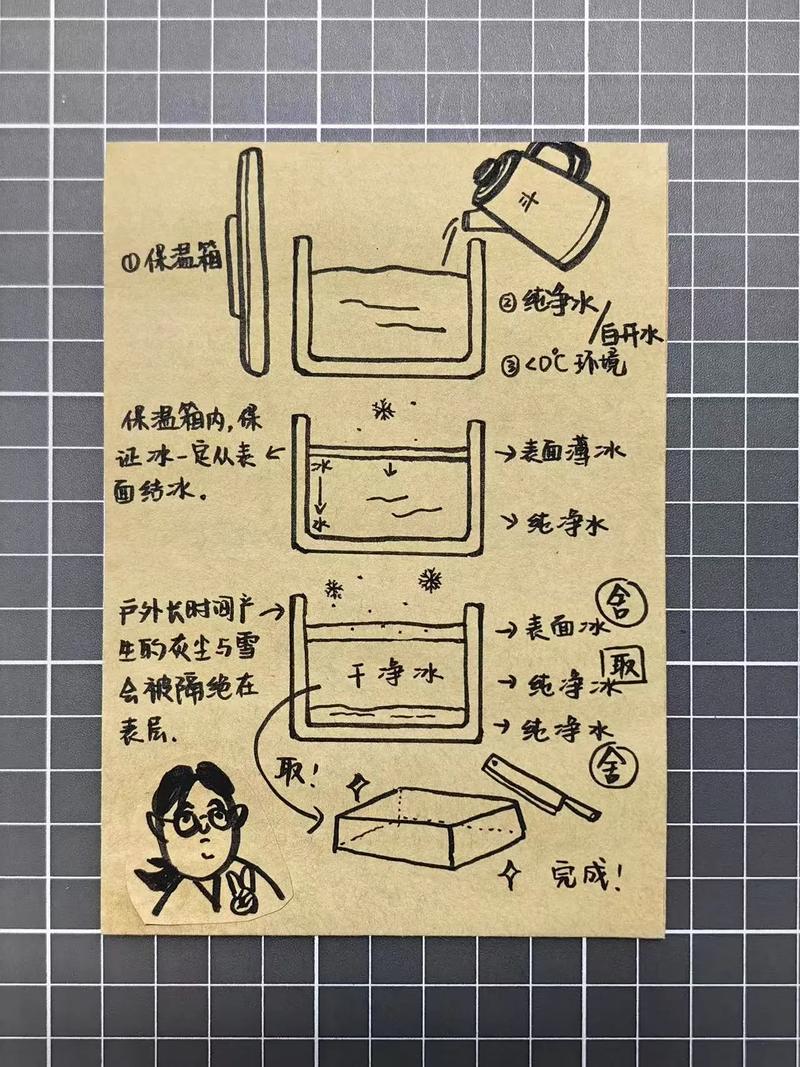 冰
①保温箱
②纯净水/白开水
③<0℃环境
保温箱内,保
证冰一定从表
面结冰。
冰
水
表面薄冰
纯净水
户外长时间产
生的灰尘与雪
会被隔绝在
表层.
干净冰
表面冰
舍
纯净冰
取
纯净水
舍
取!
完成!